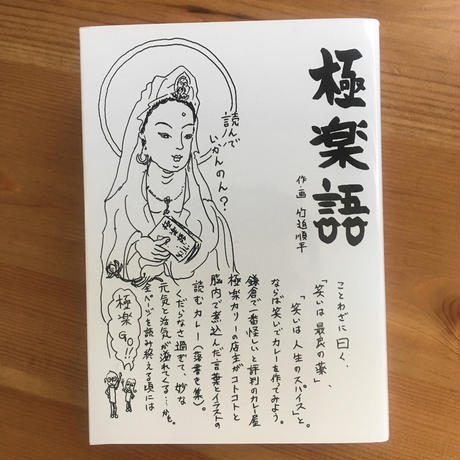 極楽語
作・画 竹迫順平
読んで
いかんのん？
極楽語
ことわざに曰く、
「笑いは最良の薬」、
「笑いは人生のスパイス」と。
ならば笑いでカレーを作ってみよう。
鎌倉で一番怪しいと評判のカレー屋
極楽カリーの店主がコトコトと
脳内で煮込んだ言葉とイラストの
読むカレー（落書き集）。
くだらなさ過ぎて、妙な
元気と活気が溢れてくる…かも。
全ページを読み終える頃には
極楽GO!!